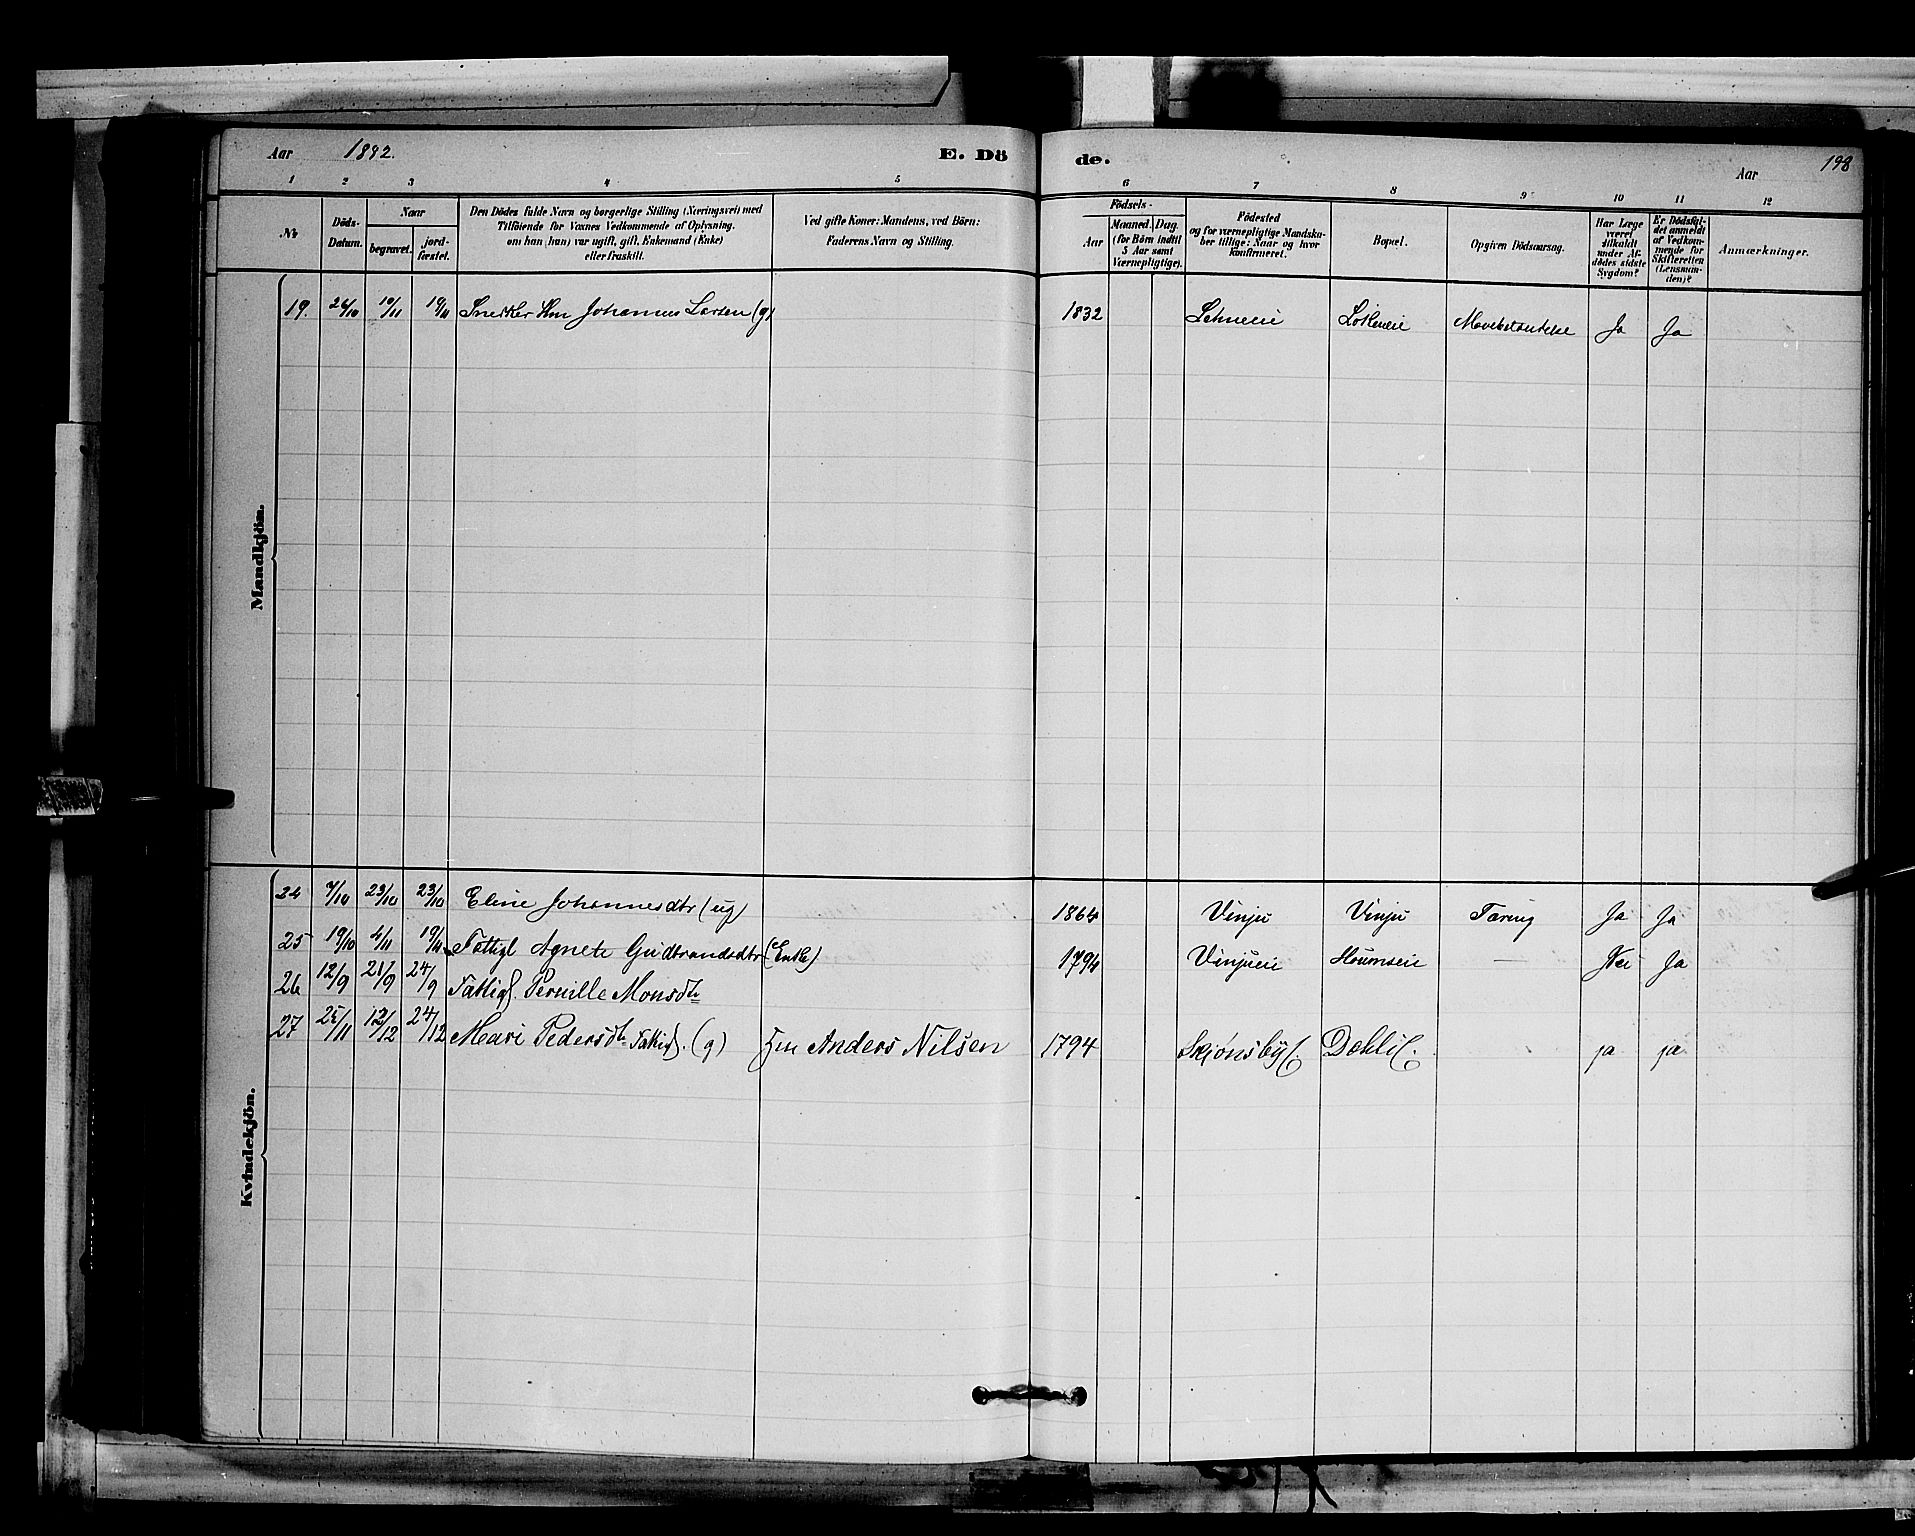 Aar 1882. E. Dö de. Aar 198
1 2 3 4 5 6 7 8 9 10 11 12
No
Döds-Datum.
Naar
begravet.
jord-fæstet.
Den Dödes fulde Navn og borgerlige Stilling (Næringsvei) med
Tilföiende for Voxnes Vedkommende af Oplysning,
om han (hun) var ugift, gift, Enkemand (Enke)
eller fraskilt.
Ved gifte Koner: Mandens, ved Börn:
Faderens Navn og Stilling.
Födsels-
Aar
Maaned. Dag.
(for Börn indtil
5 Aar samt
Værnepligtige).
Födested
og for værnepligtige Mandska-
ber tillige: Naar og hvor
konfirmeret.
Bopæl.
Opgiven Dödsaarsag.
Har Læge
været
tilkaldt
under Af-
dödes sidste
Sygdom?
Er Dödsfal-
det anmeldt
af Vedkom-
mende for
Skifteretten
(Lensman-
den)?
Anmærkninger.
Mandkjön.
19. 24/10 19/11 19/11 Snekker Hm Johannes Larsen (g) 1832 Ja Ja
Kvindekjön.
24 7/10 23/10 23/10 Eline Johannesdtr (ug) 1864 Vinju Vinju Tæring Ja Ja
25 19/10 4/11 19/11 Fattigl Agnete Gudbrandsdtr (Enke) 1794 Vinjueie — Nei Ja
26 12/9 21/9 24/9 Fattigl. Pernille Monsdtr
27 25/11 12/12 24/12 Mari Pedersdtr Fattigl. (g) Hm Anders Nilsen 1794 Skjønsbyf. ja ja